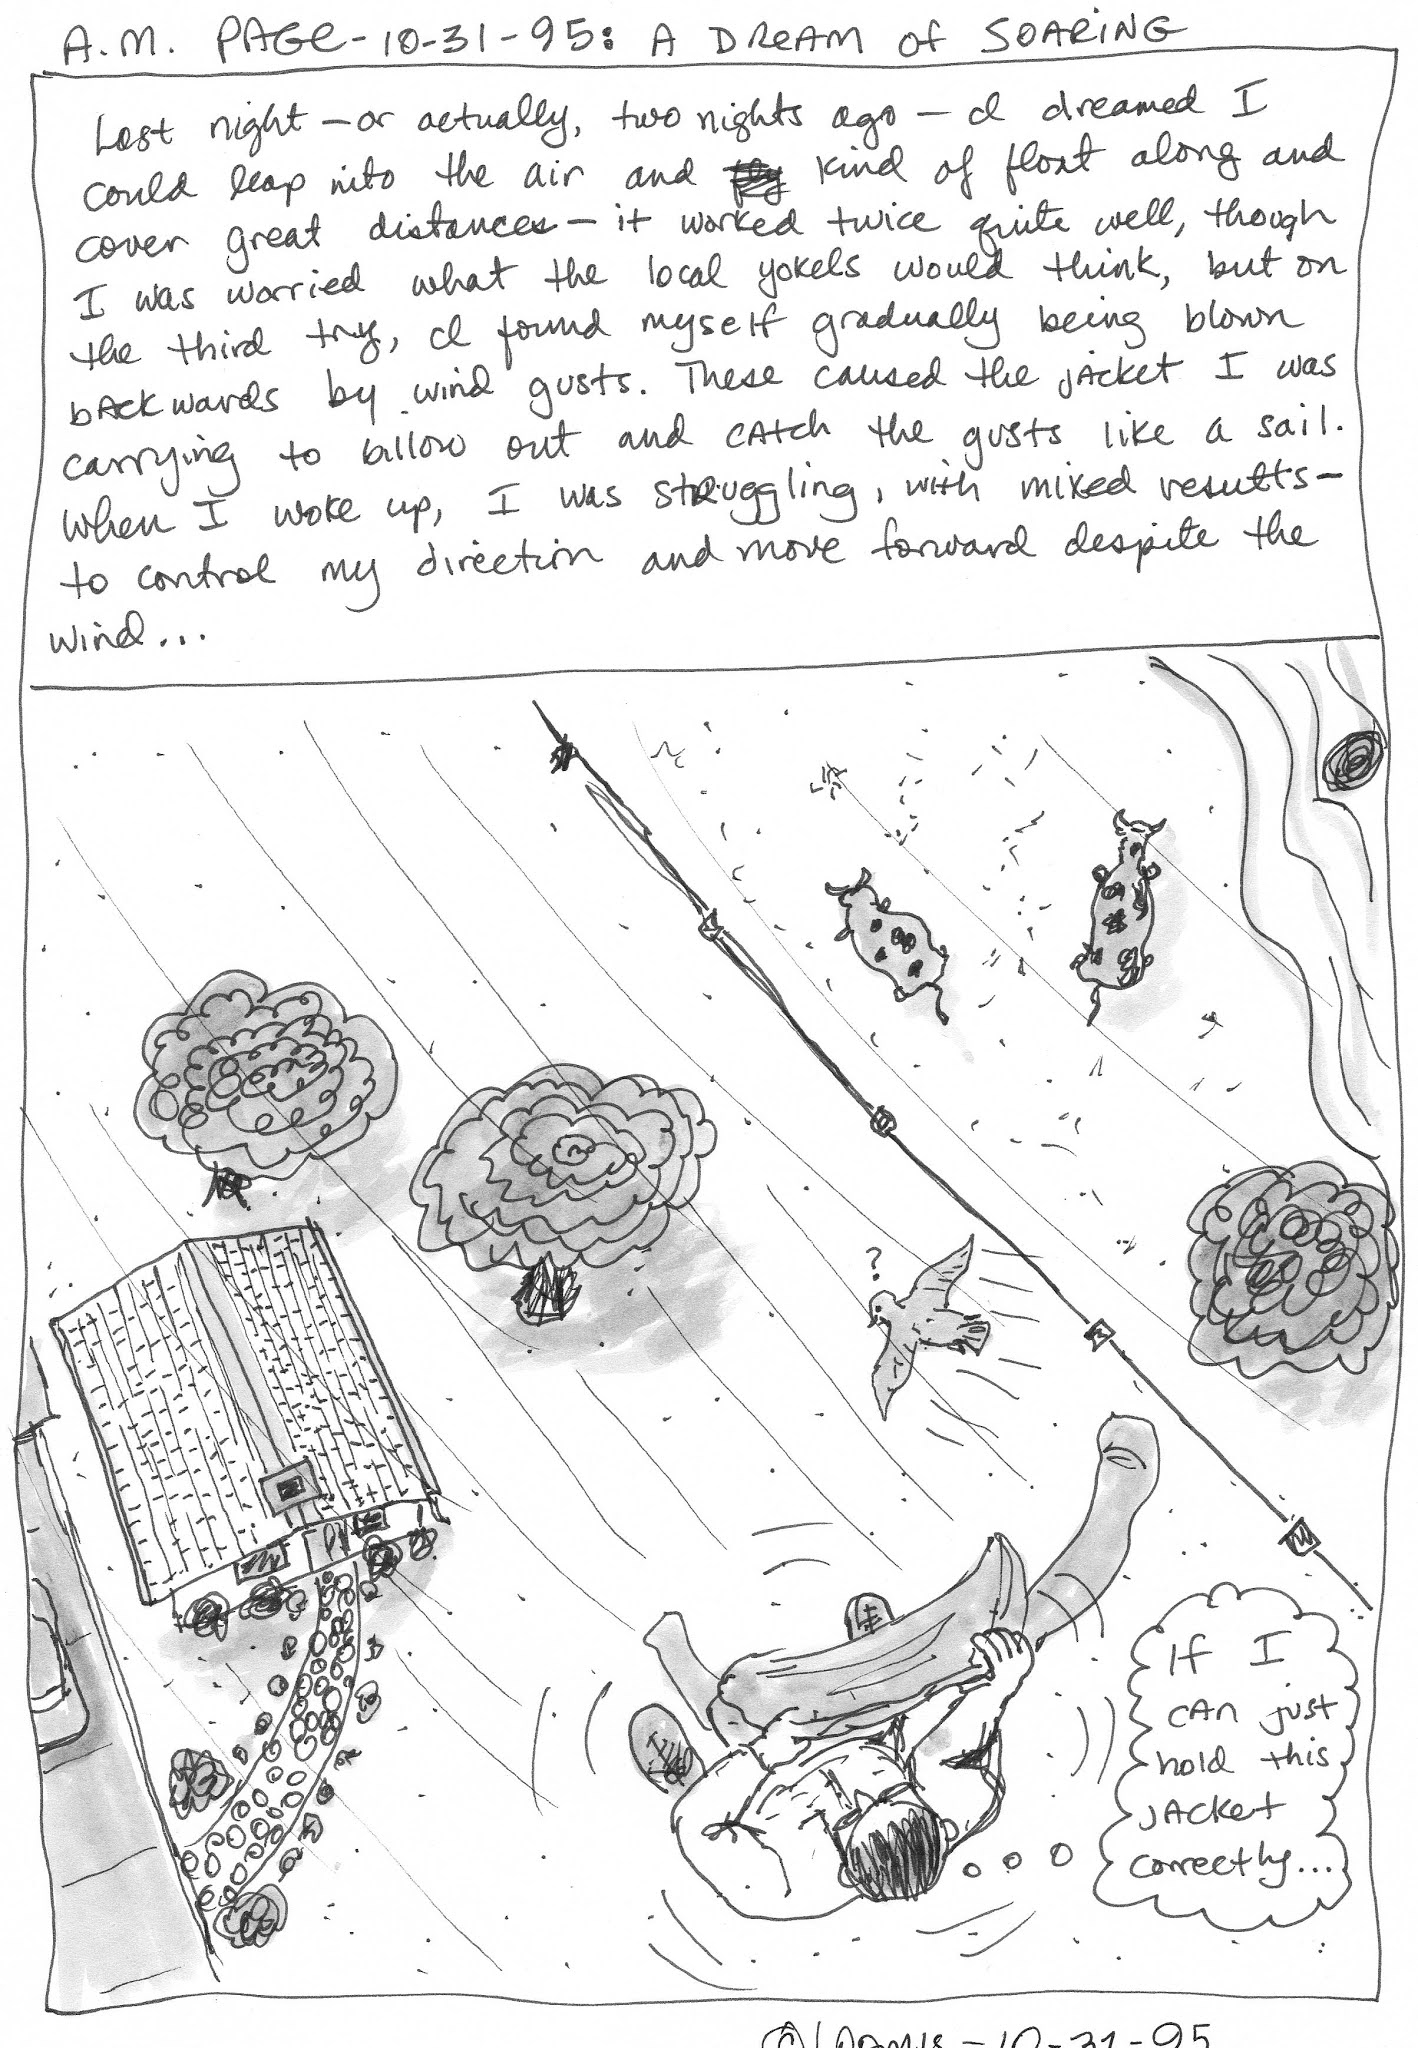 A.M. PAGE-10-31-95: A DREAM OF SOARING
Last night — or actually, two nights ago — I dreamed I
could leap into the air and kind of float along and
cover great distances — it worked twice quite well, though
I was worried what the local yokels would think, but on
the third try, I found myself gradually being blown
backwards by wind gusts. These caused the jacket I was
carrying to billow out and catch the gusts like a sail.
When I woke up, I was struggling, with mixed results —
to control my direction and move forward despite the
wind...
?
If I
can just
hold this
jacket
correctly...
© LOOMIS - 10-31-95